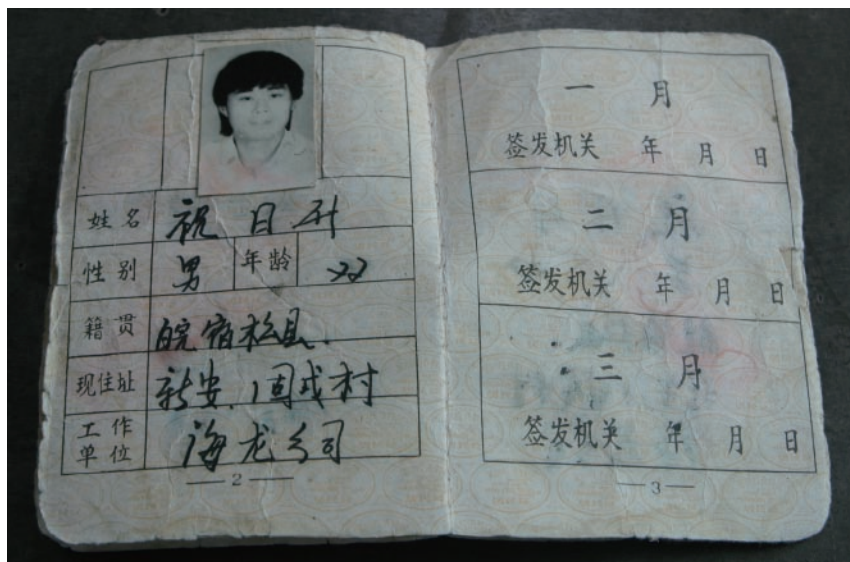 姓名 祝日升
性别 男 年龄 22
籍贯 皖宿松县.
现住址 新安.固戍村
工作单位 海龙公司
— 2 —
一 月
签发机关 年 月 日
二 月
签发机关 年 月 日
三 月
签发机关 年 月 日
— 3 —